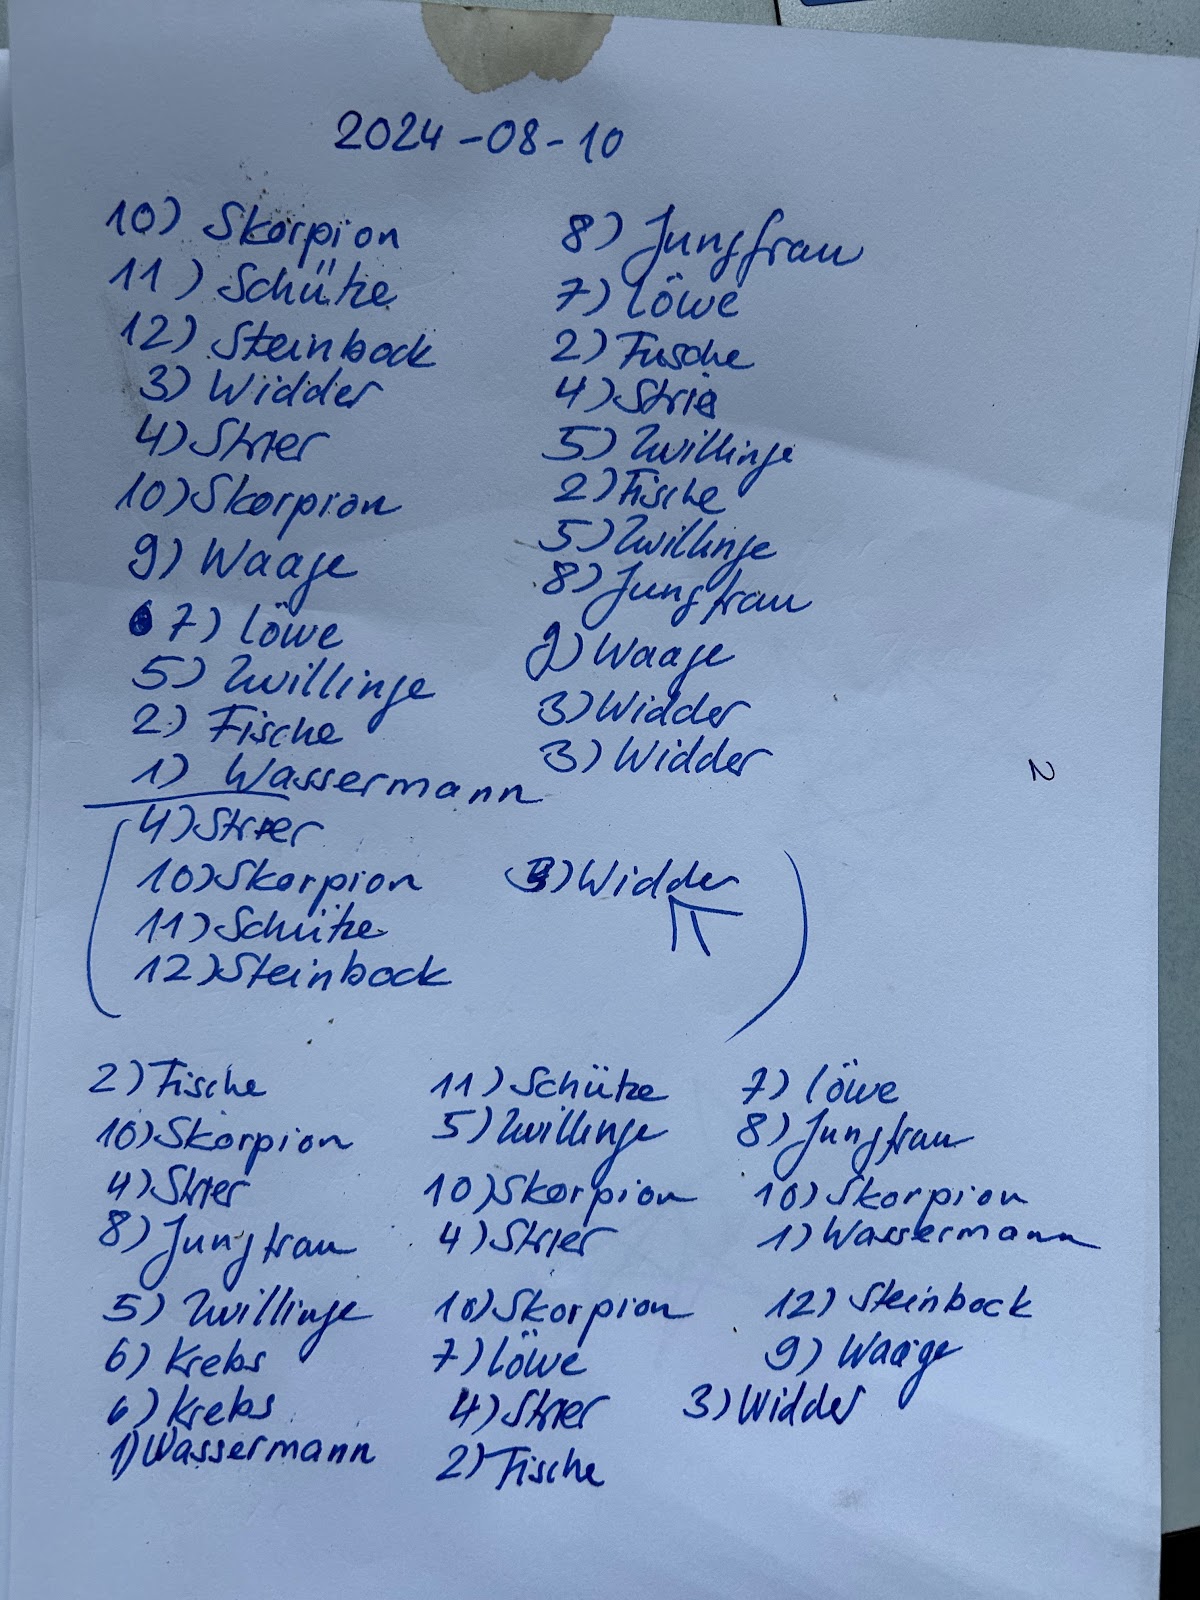 2024-08-10
10) Skorpion
11) Schütze
12) Steinbock
3) Widder
4) Strier
10) Skorpion
9) Waage
7) Löwe
5) Zwillinge
2) Fische
1) Wassermann
8) Jungfrau
7) Löwe
2) Fische
4) Strie
5) Zwillinge
2) Fische
5) Zwillinge
8) Jungfrau
9) Waage
3) Widder
3) Widder
N
(4) Strier
10) Skorpion
11) Schütze
12) Steinbock
3) Widder)
2) Fische
10) Skorpion
4) Strier
8) Jungfrau
5) Zwillinge
6) Krebs
6) Krebs
1) Wassermann
11) Schütze
5) Zwillinge
10) Skorpion
4) Strier
10) Skorpion
7) Löwe
4) Strier
2) Fische
7) Löwe
8) Jungfrau
10) Skorpion
1) Wassermann
12) Steinbock
9) Waage
3) Widder